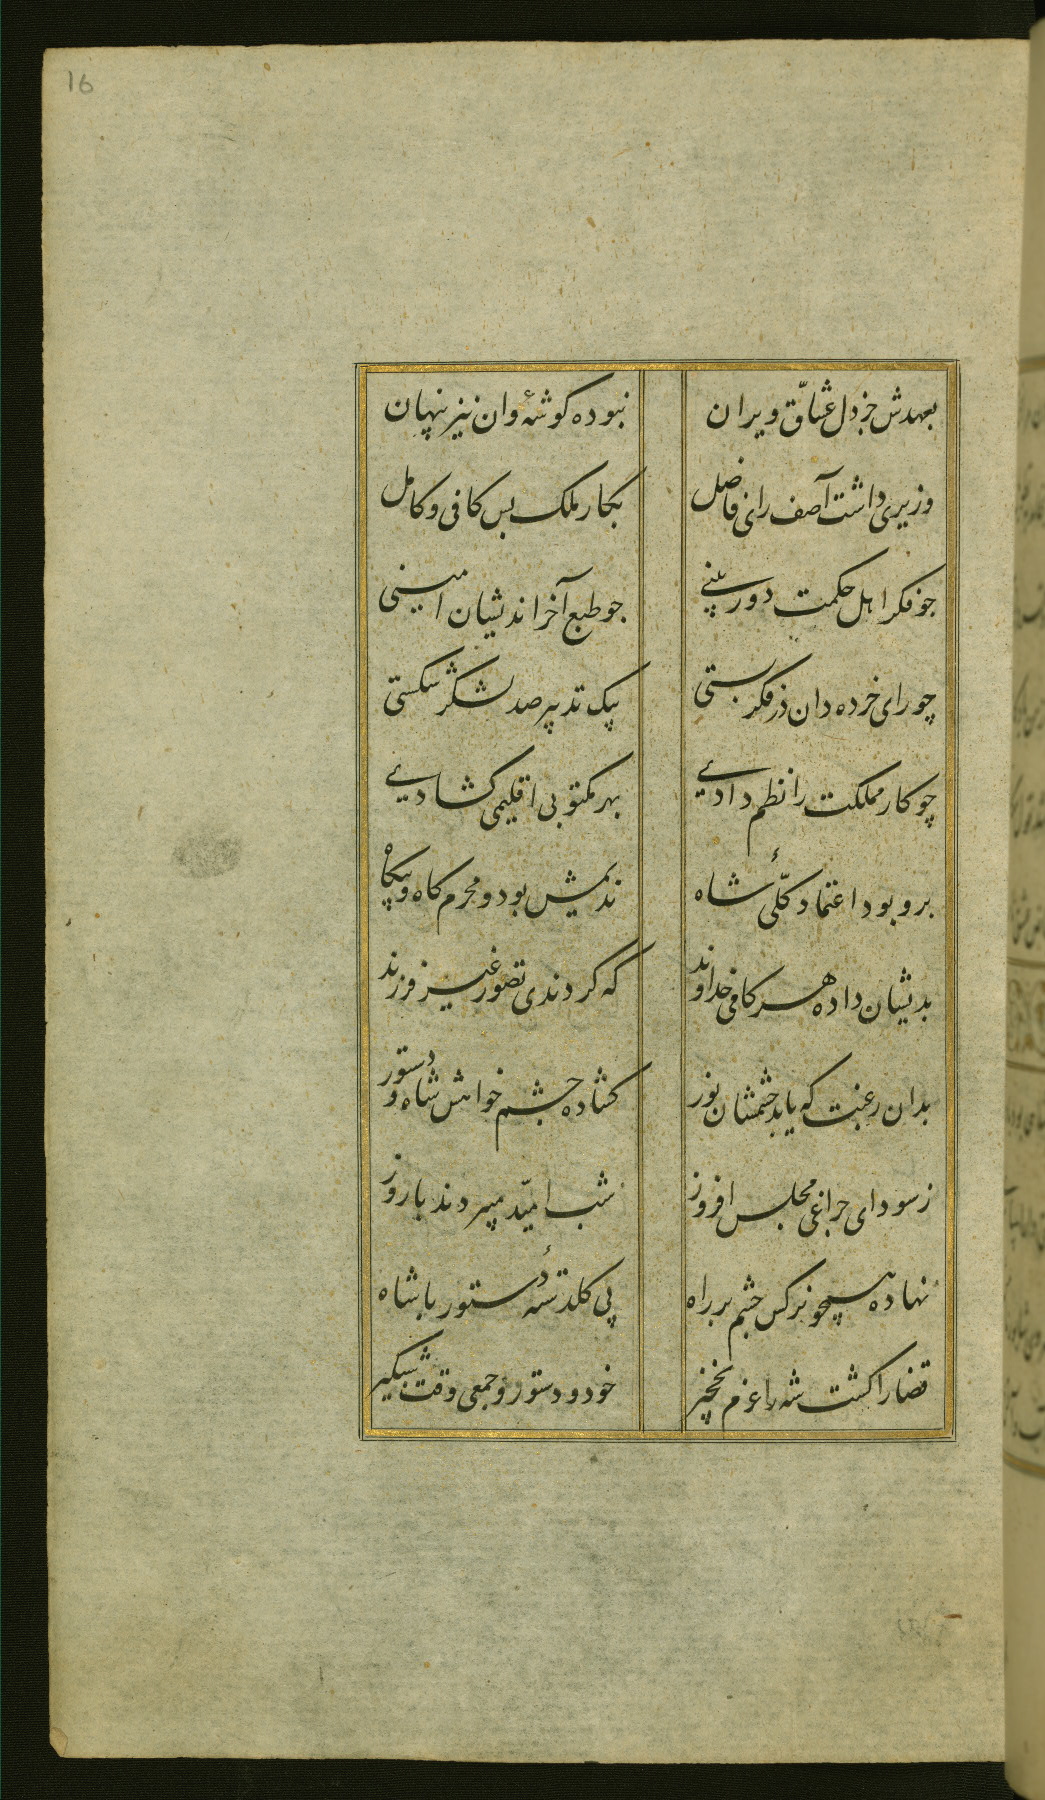 16
بعهدش جز دل عشاق ویران نبوده کوشهٔ وان نیز پنهان
وزیری داشت آصف رای فاضل بکار ملک بس کافی و کامل
جو فکر اهل حکمت دور بینی جو طبع آخر اندیشان امینی
چو رای خرده دان در فکر بستی بیک تدبیر صد لشکر شکستی
چو کار مملکت را نظم دادی بهر مکتوبی اقلیمی کشادی
برو بود اعتماد کلّیٔ شاه ندیمش بود و محرم کاه و بیکاه
بدیشان داده هر کامی خداوند که کردندی تصور غیر فرزند
بدان رغبت که یابد چشمشان نور کشاده چشم خواهش شاه و دستور
ز سودای چراغی مجلس افروز شب امیّد میبردند با روز
نهاده همچو نرکس چشم بر راه پی کلدستهٔ دستور با شاه
قضا را کشت شه را عزم نخچیر خود و دستور و جمعی وقت شبکیر